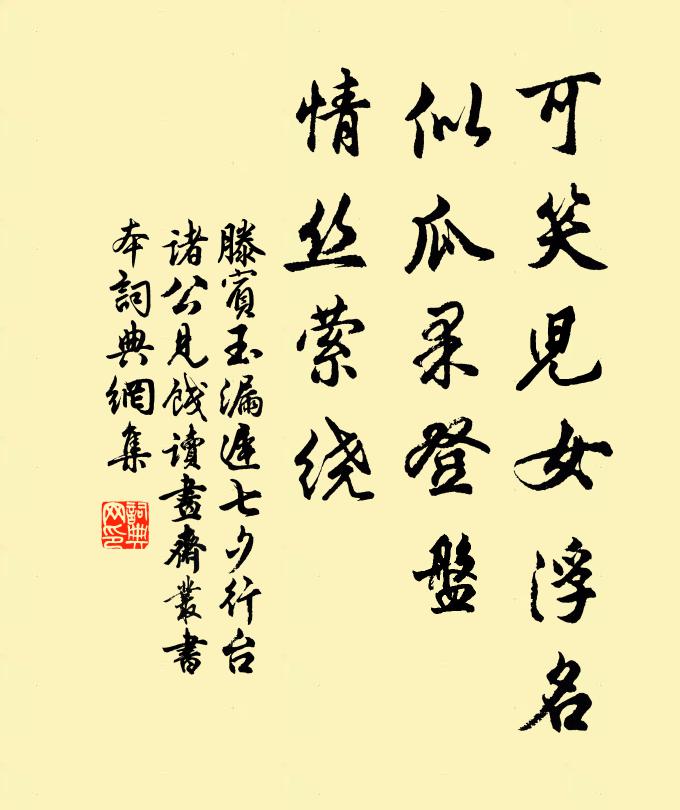 可笑兒女浮名
似瓜果登盤
情丝萦绕
滕賓玉漏遲七夕行台
諸公見餞讀畫齋叢書
本詞典網集
詞典网印